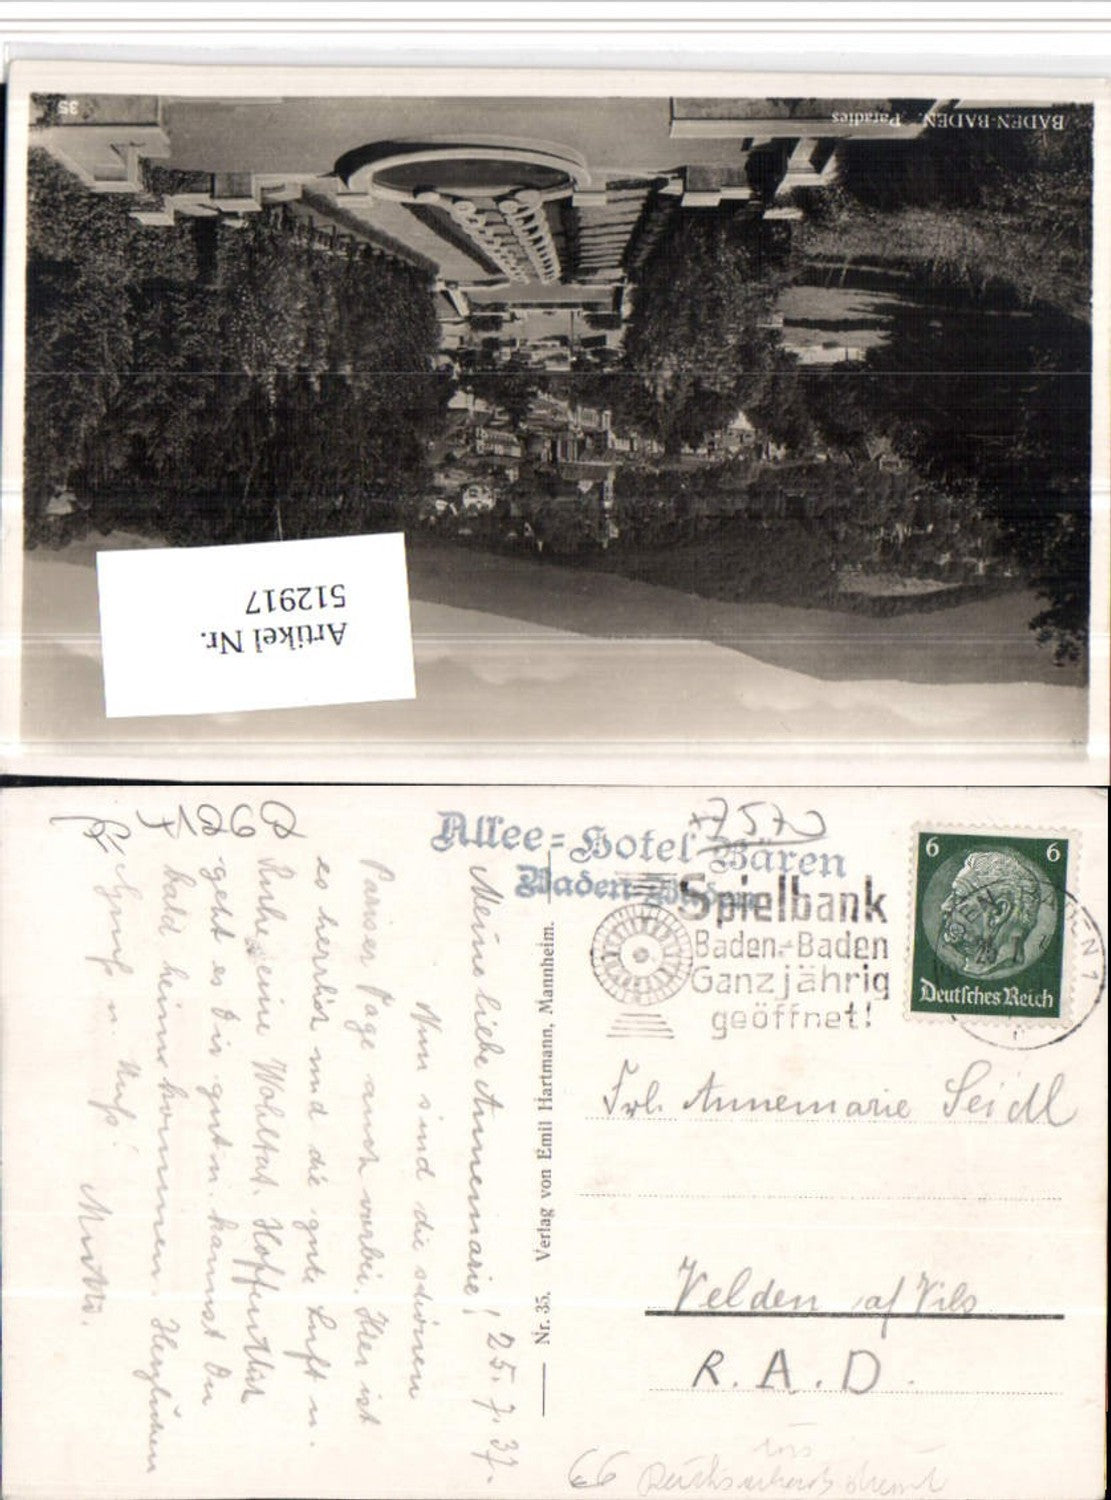 BADEN-BADEN. Paradies
35
Artikel Nr.
512917
Allee=Hotel Bären
Baden-Baden
7570
Spielbank
Baden-Baden
Ganzjährig
geöffnet!
6 6
Deutsches Reich
Frl. Annemarie Seidl
Velden a/Vils
R.A.D.
66
Nr. 35. Verlag von Emil Hartmann, Mannheim.
Meine liebe Annemarie! 25.7.37.
Nun sind die schönen
Pariser Tage auch vorbei. Hier ist
es herrlich und die gute Luft u.
Ruhe eine Wohltat. Hoffentlich
geht es Dir gut u. kannst Du
bald heimkommen. Herzlichen
Gruß u. Kuß.
Mutti.